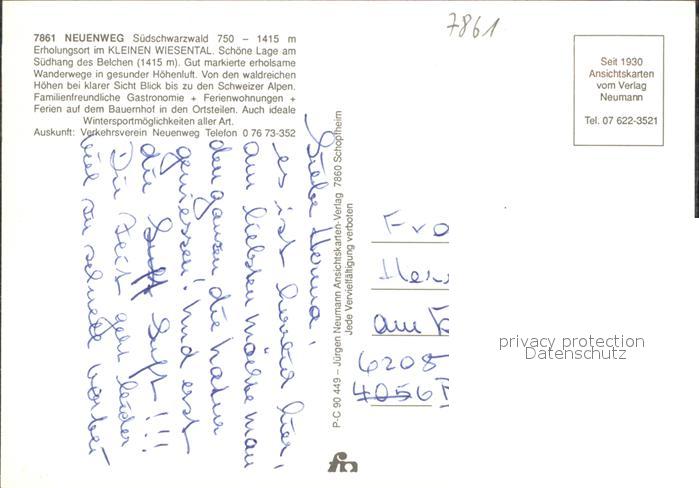 7861
7861 NEUENWEG Südschwarzwald 750 – 1415 m
Erholungsort im KLEINEN WIESENTAL. Schöne Lage am
Südhang des Belchen (1415 m). Gut markierte erholsame
Wanderwege in gesunder Höhenluft. Von den waldreichen
Höhen bei klarer Sicht Blick bis zu den Schweizer Alpen.
Familienfreundliche Gastronomie + Ferienwohnungen +
Ferien auf dem Bauernhof in den Ortsteilen. Auch ideale
Wintersportmöglichkeiten aller Art.
Auskunft: Verkehrsverein Neuenweg Telefon 0 76 73-352
Seit 1930
Ansichtskarten
vom Verlag
Neumann
Tel. 07 622-3521
Liebe
es ist hier,
am liebsten möchte man
den ganzen die Natur
geniessen! Und erst
die Luft Luft!!!
Die Zeit geht leider
viel zu schnell vorbei
P-C 90 449 – Jürgen Neumann Ansichtskarten-Verlag 7860 Schopfheim
Jede Vervielfältigung verboten
am
6208
4056
privacy protection
Datenschutz